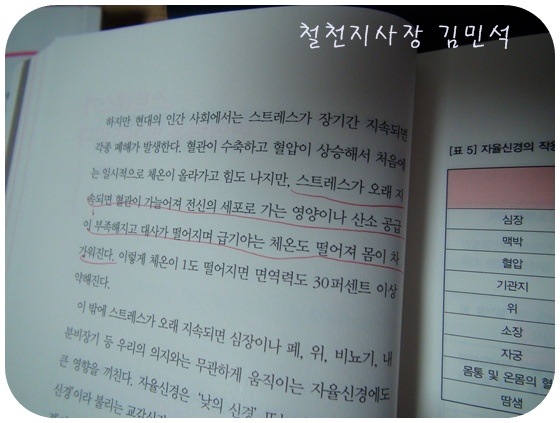 철천지사장 김민석
하지만 현대의 인간 사회에서는 스트레스가 장기간 지속되면
각종 폐해가 발생한다. 혈관이 수축하고 혈압이 상승해서 처음에
는 일시적으로 체온이 올라가고 힘도 나지만, 스트레스가 오래 지
속되면 혈관이 가늘어져 전신의 세포로 가는 영양이나 산소 공급
이 부족해지고 대사가 떨어지며 급기야는 체온도 떨어져 몸이 차
가워진다. 이렇게 체온이 1도 떨어지면 면역력도 30퍼센트 이상
약해진다.
이 밖에 스트레스가 오래 지속되면 심장이나 폐, 위, 비뇨기, 내
분비장기 등 우리의 의지와는 무관하게 움직이는 자율신경에도
큰 영향을 끼친다. 자율신경은 '낮의 신경'
신경'이라 불리는 교감신경
[표 5] 자율신경의 작용
심장
맥박
혈압
기관지
위
소장
자궁
몸통 및 온몸의
땀샘